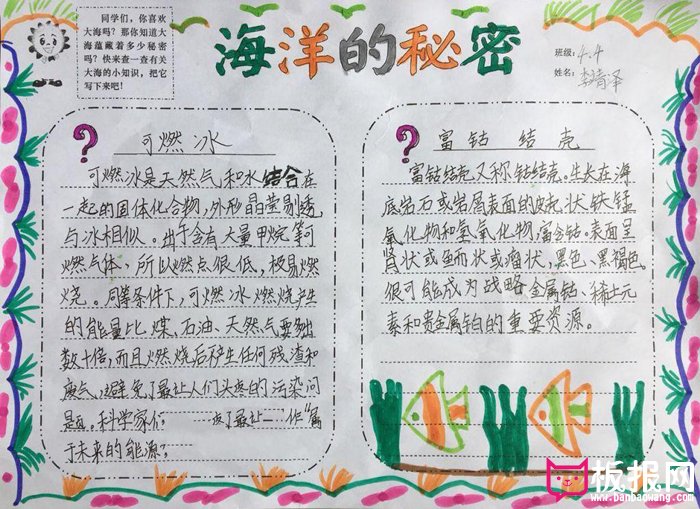 同学们，你喜欢
大海吗？那你知道大
海蕴藏着多少秘密
吗？快来查一查有关
大海的小知识，把它
写下来吧！
海洋的秘密
班级：4.4
姓名：李靖泽
可燃冰
可燃冰是天然气和水结合在
一起的固体化合物，外形晶莹剔透，
与冰相似。由于含有大量甲烷等可
燃气体，所以燃点很低，极易燃
烧。同等条件下，可燃冰燃烧产生
的能量比煤、石油、天然气要多出
数十倍，而且燃烧后不产生任何残渣和
废气，避免了最让人们头疼的污染问
题。科学家们
于未来的能源"
富钴结壳
富钴结壳又称钴结壳。生长在海
底岩石或岩屑表面的皮壳状铁锰
氧化物和氢氧化物，富含钴。表面呈
肾状或鲕状或瘤状，黑色、黑褐色。
很可能成为战略金属钴、稀土元
素和贵金属铂的重要资源。
板报网
www.banbaowang.com